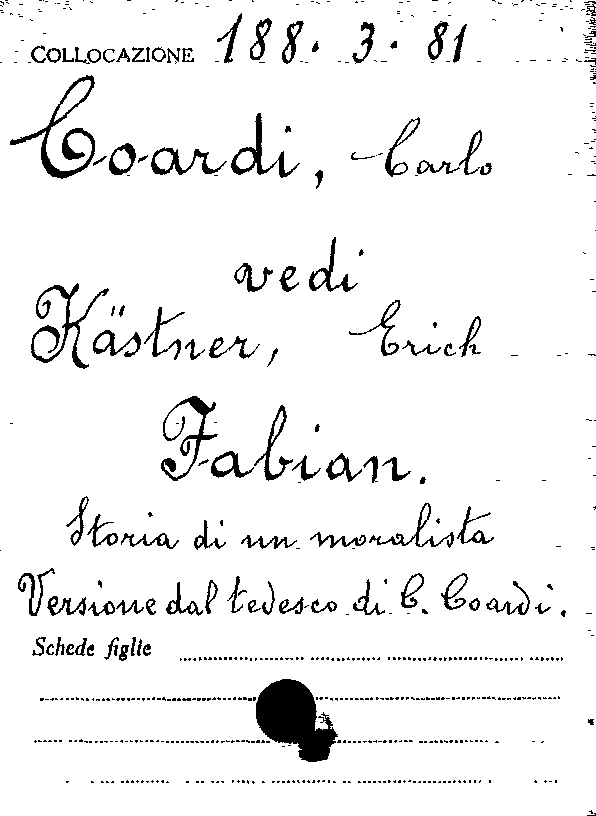 COLLOCAZIONE 188. 3. 81
Coardi, Carlo
vedi
Kästner, Erich
Fabian.
Storia di un moralista
Versione dal tedesco di C. Coardi.
Schede figlie